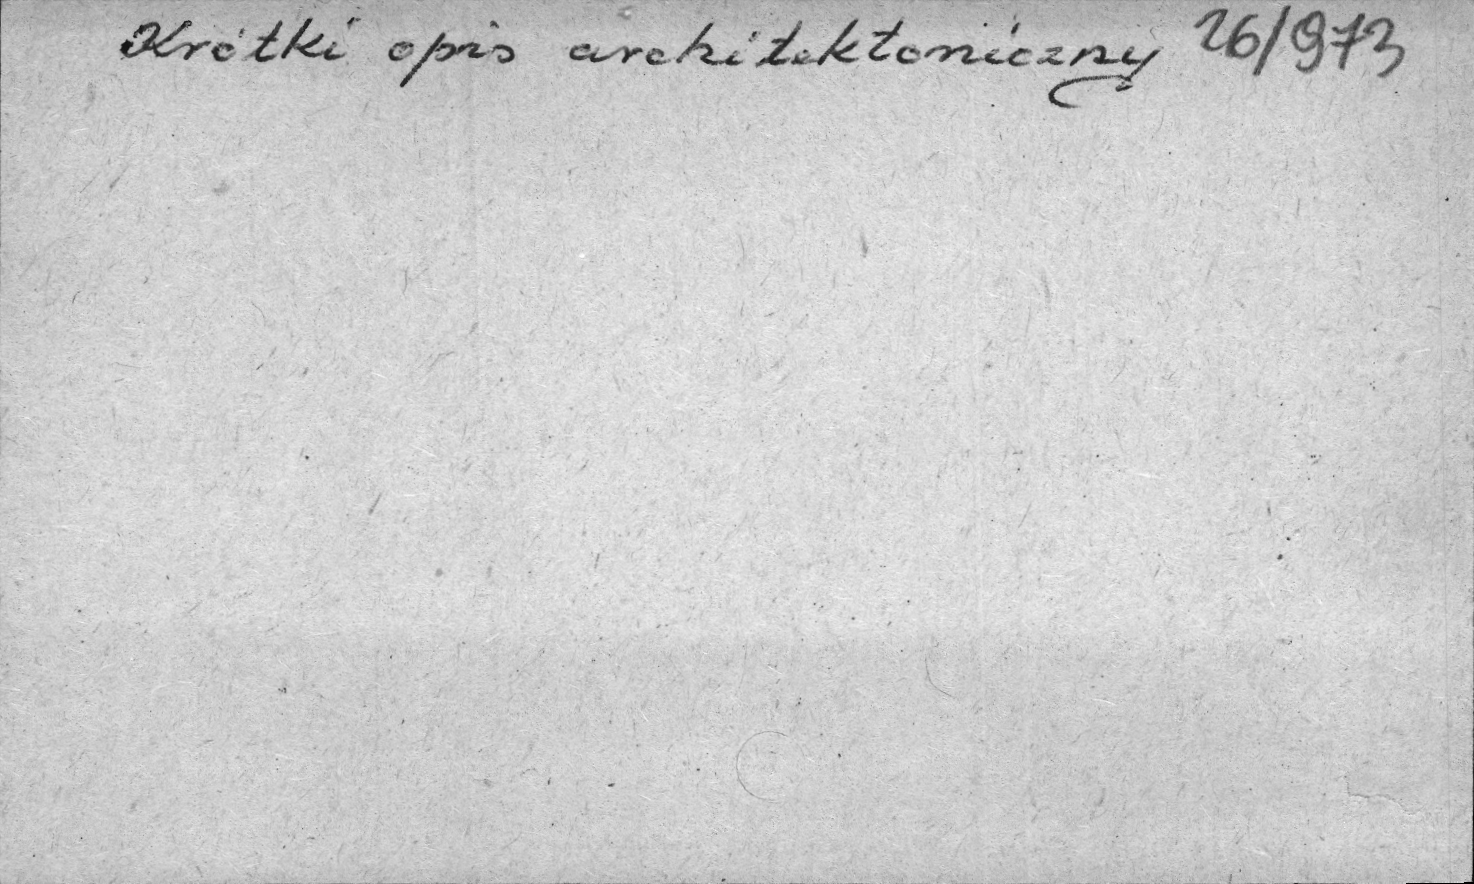 Krótki opis architektoniczny 26/973